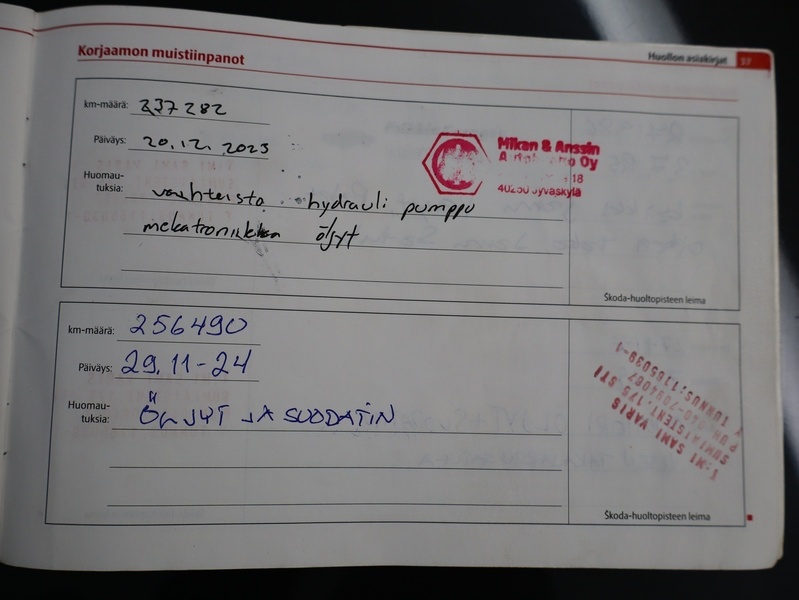 Korjaamon muistiinpanot
Huollon asiakirjat 37
km-määrä: 237282
Päiväys: 20.12.2023
Huomau-
tuksia: vaihteisto hydrauli pumppu
mekatroniikkaan öljyt
Mikan & Anssin
Oy
18
Jyväskylä
Škoda-huoltopisteen leima
km-määrä: 256490
Päiväys: 29.11-24
Huomau-
tuksia: ÖLJYT JA SUODATIN
T:MI SAMI VARIS
SUMIAISTENT.175 STI
Y TUNNUS:1185039-1
Škoda-huoltopisteen leima